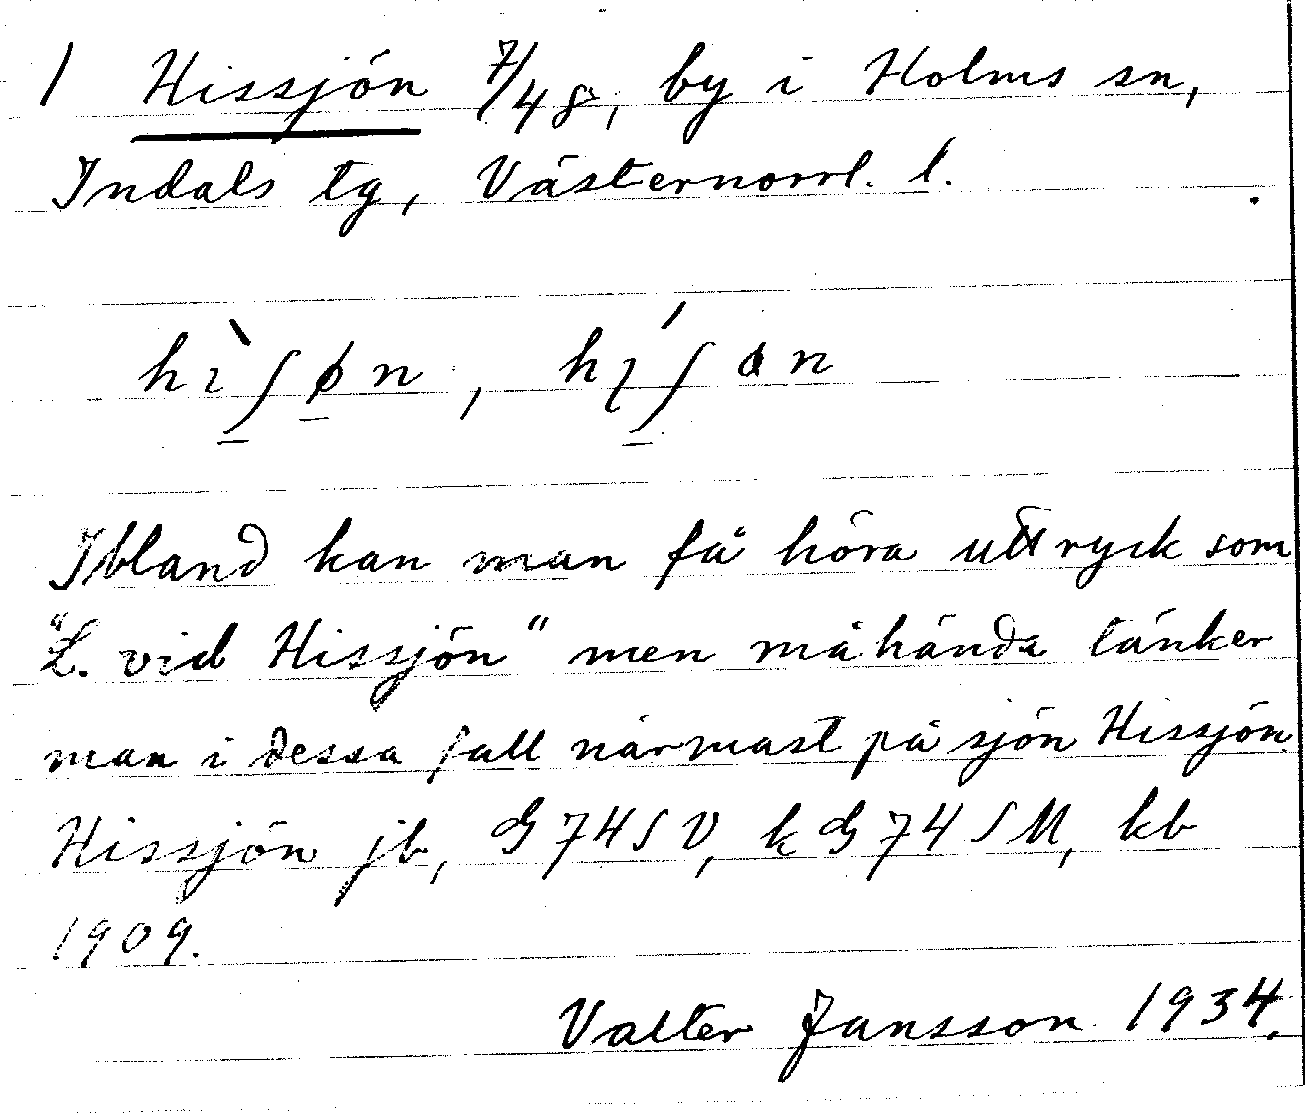 1 Hissjön 7/48, by i Holms sn,
Indals tg, Västernorrl. l.
hɩ̀ʃøn, hɩ́ʃən
Ibland kan man få höra uttryck som
"L. vid Hissjön" men måhända tänker
man i dessa fall närmast på sjön Hissjön.
Hissjön jb, G 74 SV, k G 74 SM, kb
1909.
Valter Jansson 1934.